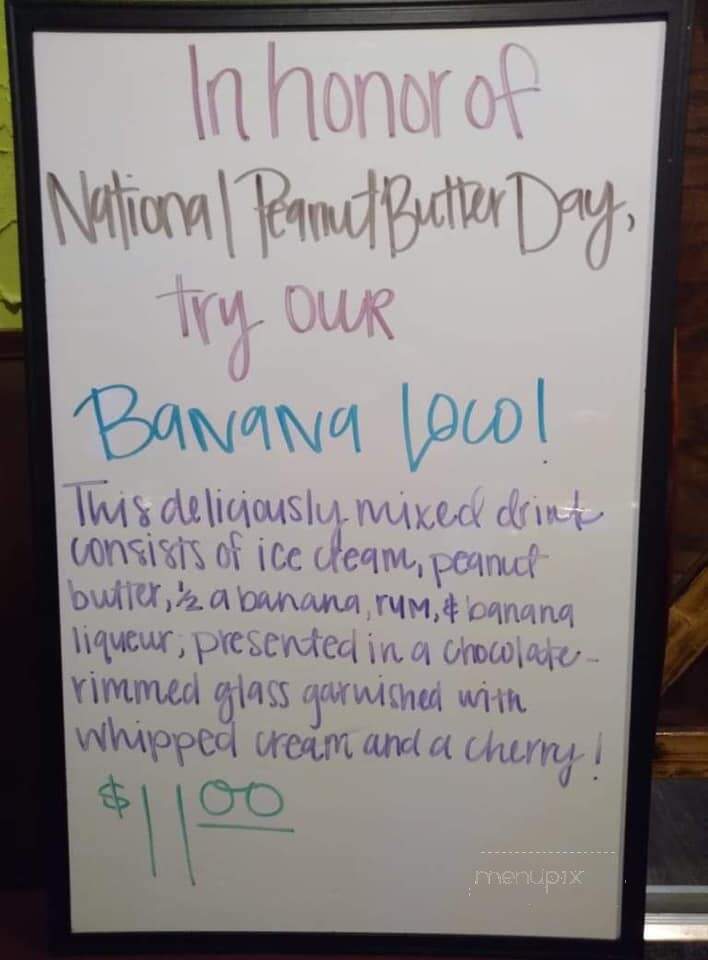 In honor of
National Peanut Butter Day,
try OUR
BANANA Loco!
This deliciously mixed drink
consists of ice cream, peanut
butter, ½ a banana, rum, & banana
liqueur; presented in a chocolate-
rimmed glass garnished with
whipped cream and a cherry!
$11.00
menupix